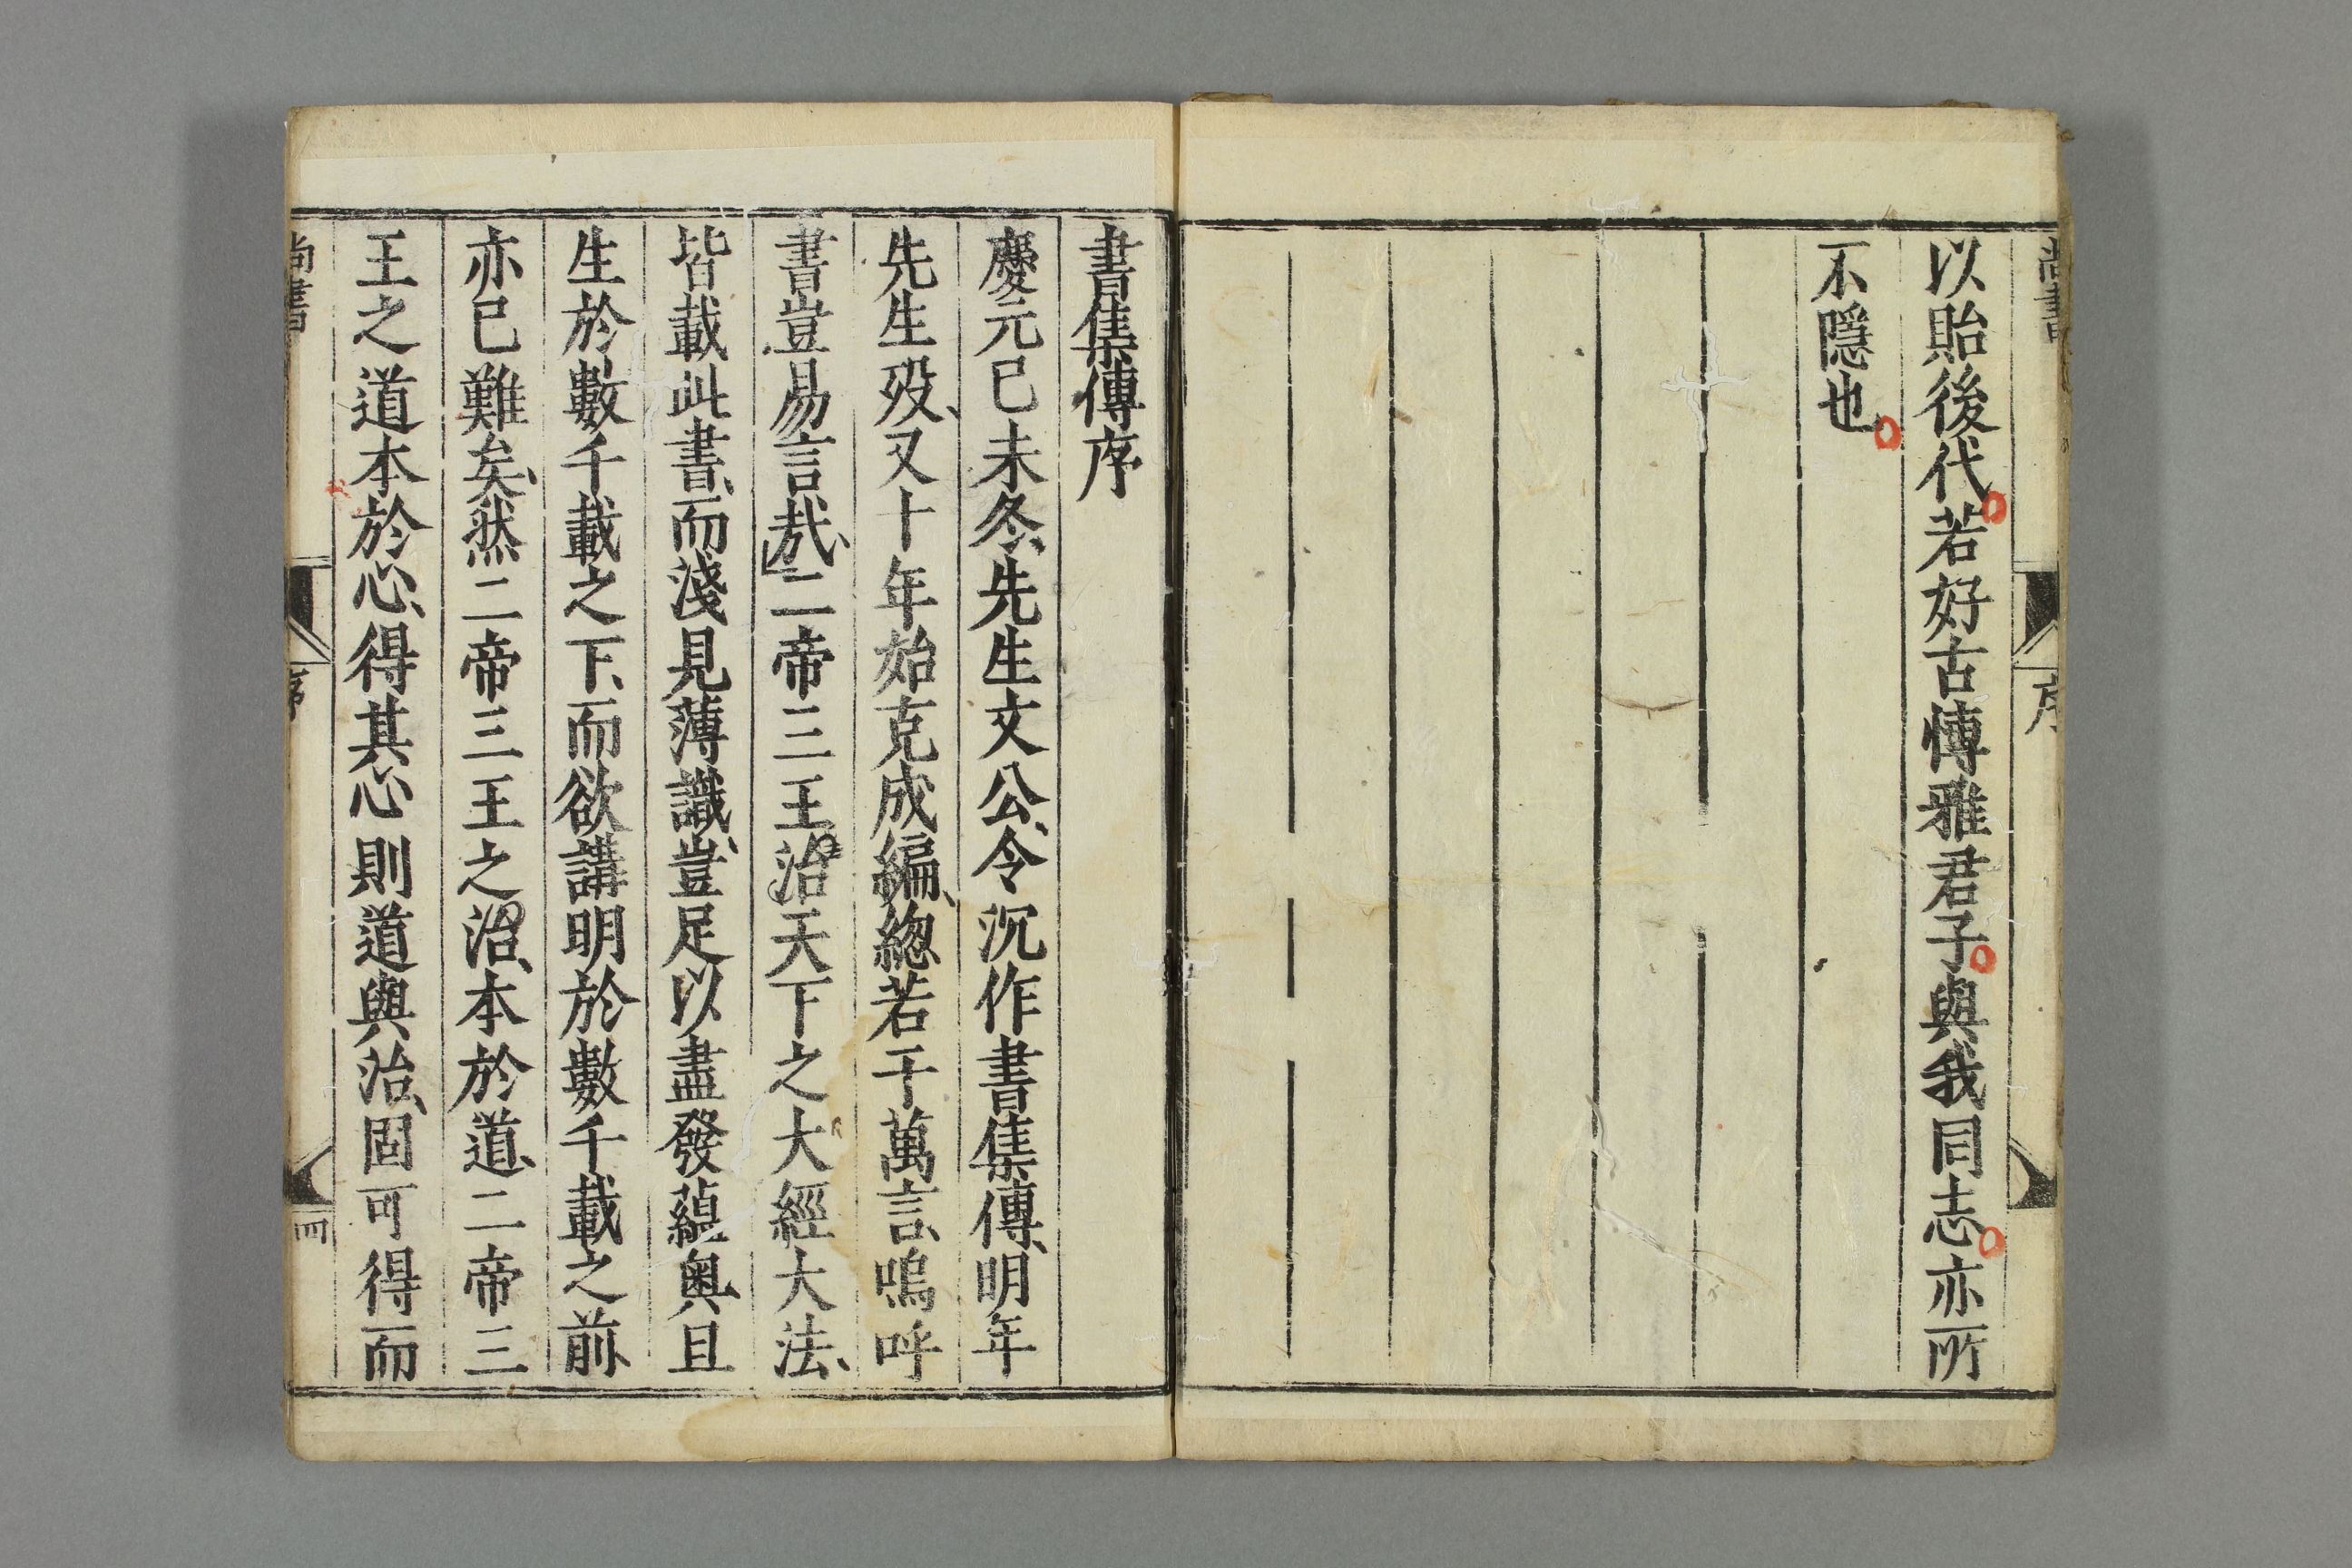 尚書
序
以貽後代若好古博雅君子與我同志亦所
不隱也
書集傳序
慶元己未冬先生文公令沉作書集傳明年
先生歿又十年始克成編總若干萬言嗚呼
書豈易言哉二帝三王治天下之大經大法
皆載此書而淺見薄識豈足以盡發蘊奧且
生於數千載之下而欲講明於數千載之前
亦已難矣然二帝三王之治本於道二帝三
王之道本於心得其心則道與治固可得而
尚書
序
四